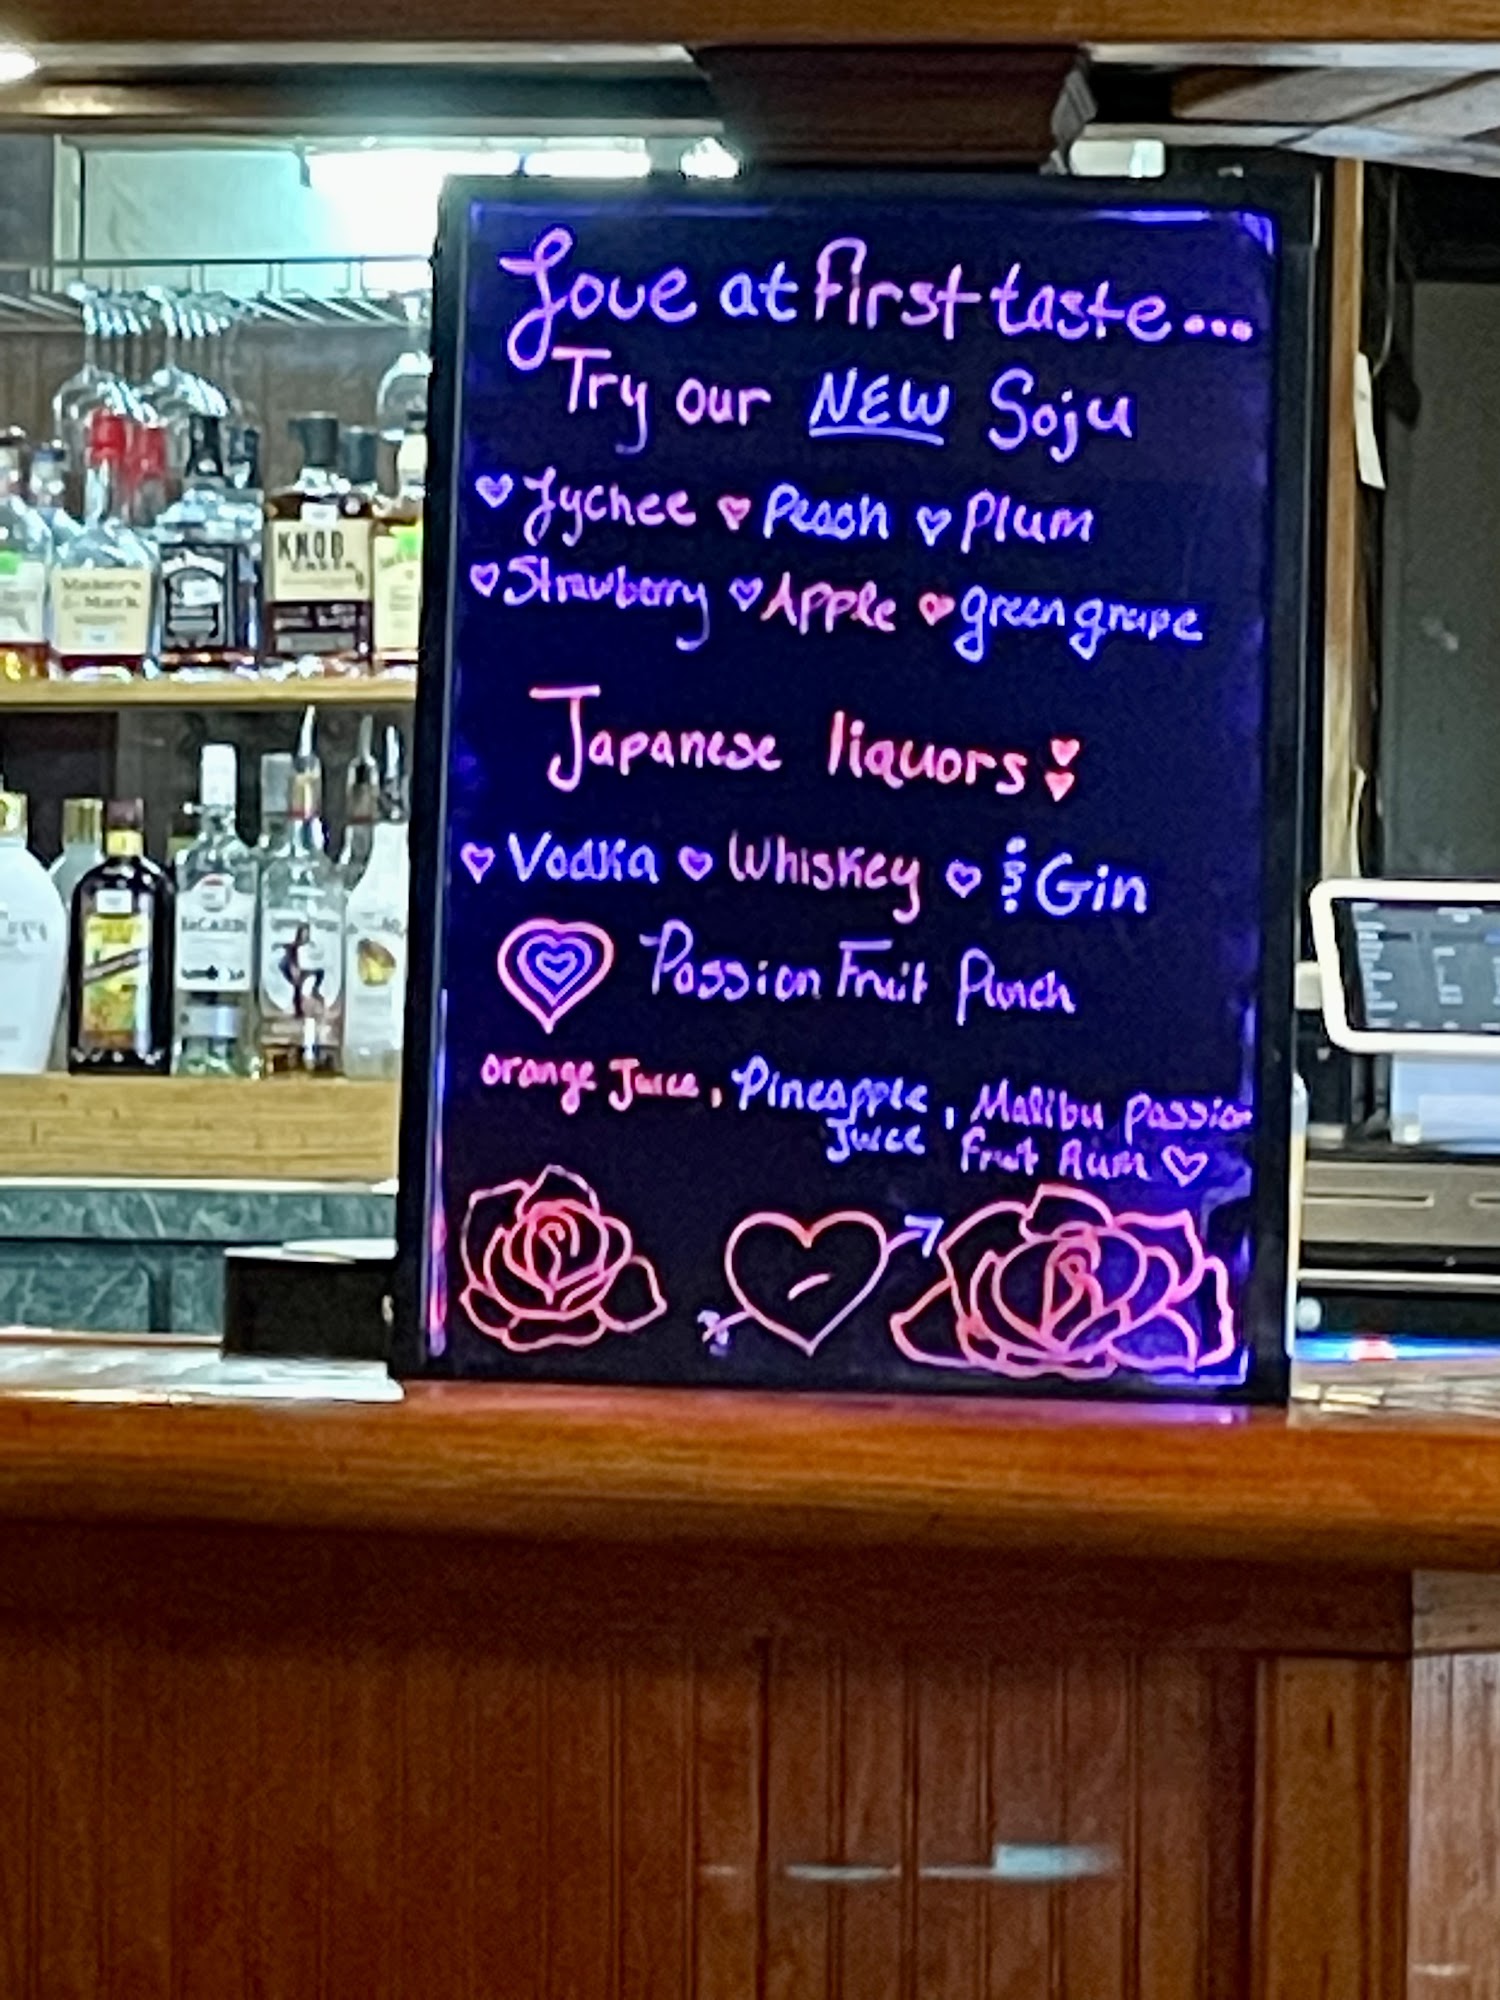 Love at First taste...
Try our NEW Soju
Lychee Peach Plum
Strawberry Apple green grape
Japanese liquors
Vodka Whiskey & Gin
Passion Fruit Punch
orange Juice, Pineapple Juice, Malibu Passion Fruit Rum
KNOB CREEK
Maker's Mark
BACARDI